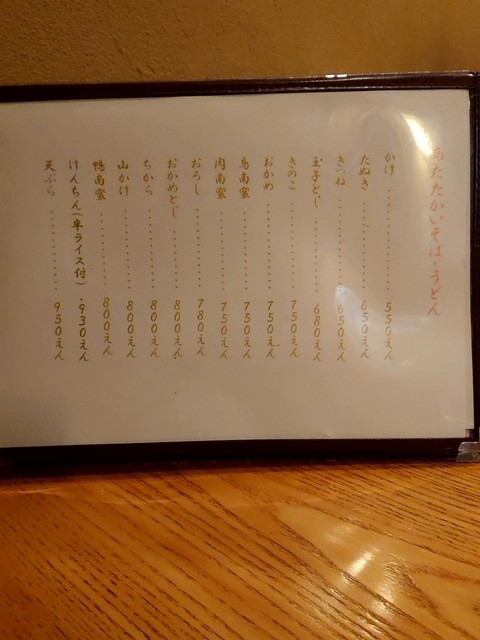 あたたかいそば・うどん
かけ・・・・・・・・・・550えん
たぬき・・・・・・・・・650えん
きつね・・・・・・・・・650えん
玉子とじ・・・・・・・・680えん
きのこ・・・・・・・・・750えん
おかめ・・・・・・・・・750えん
鳥南蛮・・・・・・・・・750えん
肉南蛮・・・・・・・・・750えん
おろし・・・・・・・・・780えん
おかめとじ・・・・・・・800えん
ちから・・・・・・・・・800えん
山かけ・・・・・・・・・800えん
鴨南蛮・・・・・・・・・800えん
けんちん(半ライス付)・930えん
天ぷら・・・・・・・・・950えん